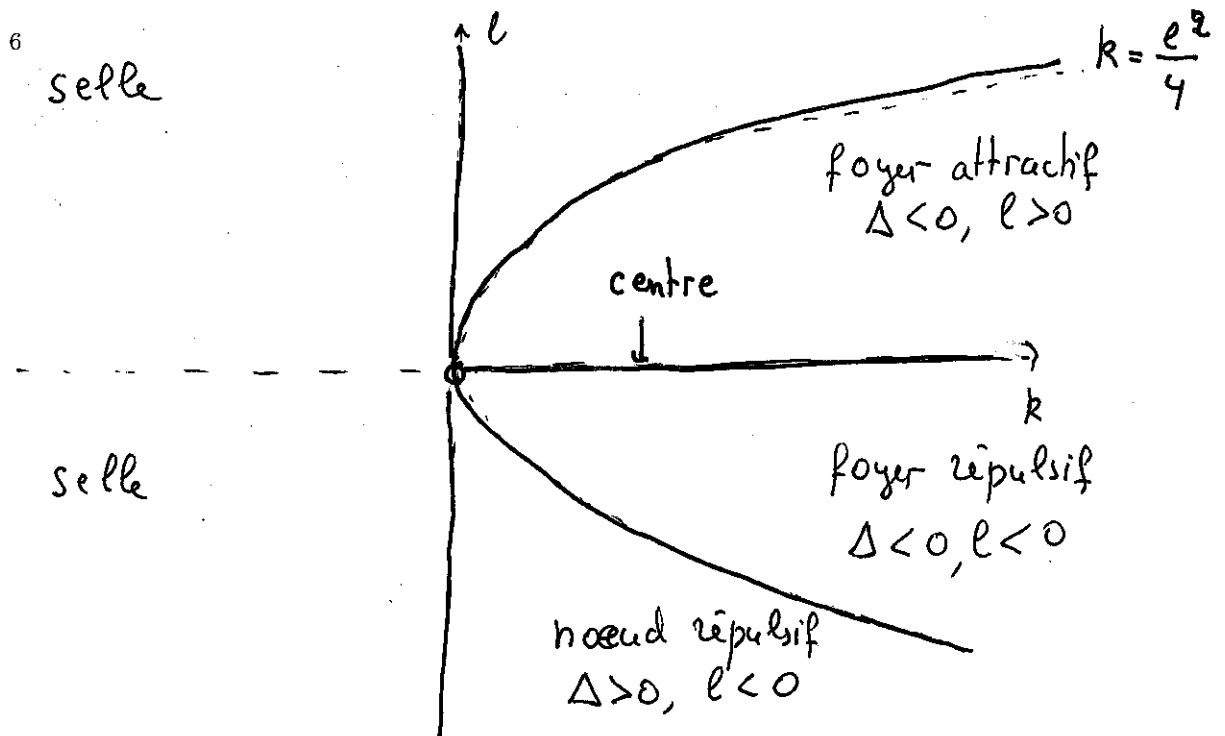 6
selle
l
k = l²/4
foyer attractif
Δ < 0, l > 0
centre
k
selle
foyer répulsif
Δ < 0, l < 0
nœud répulsif
Δ > 0, l < 0